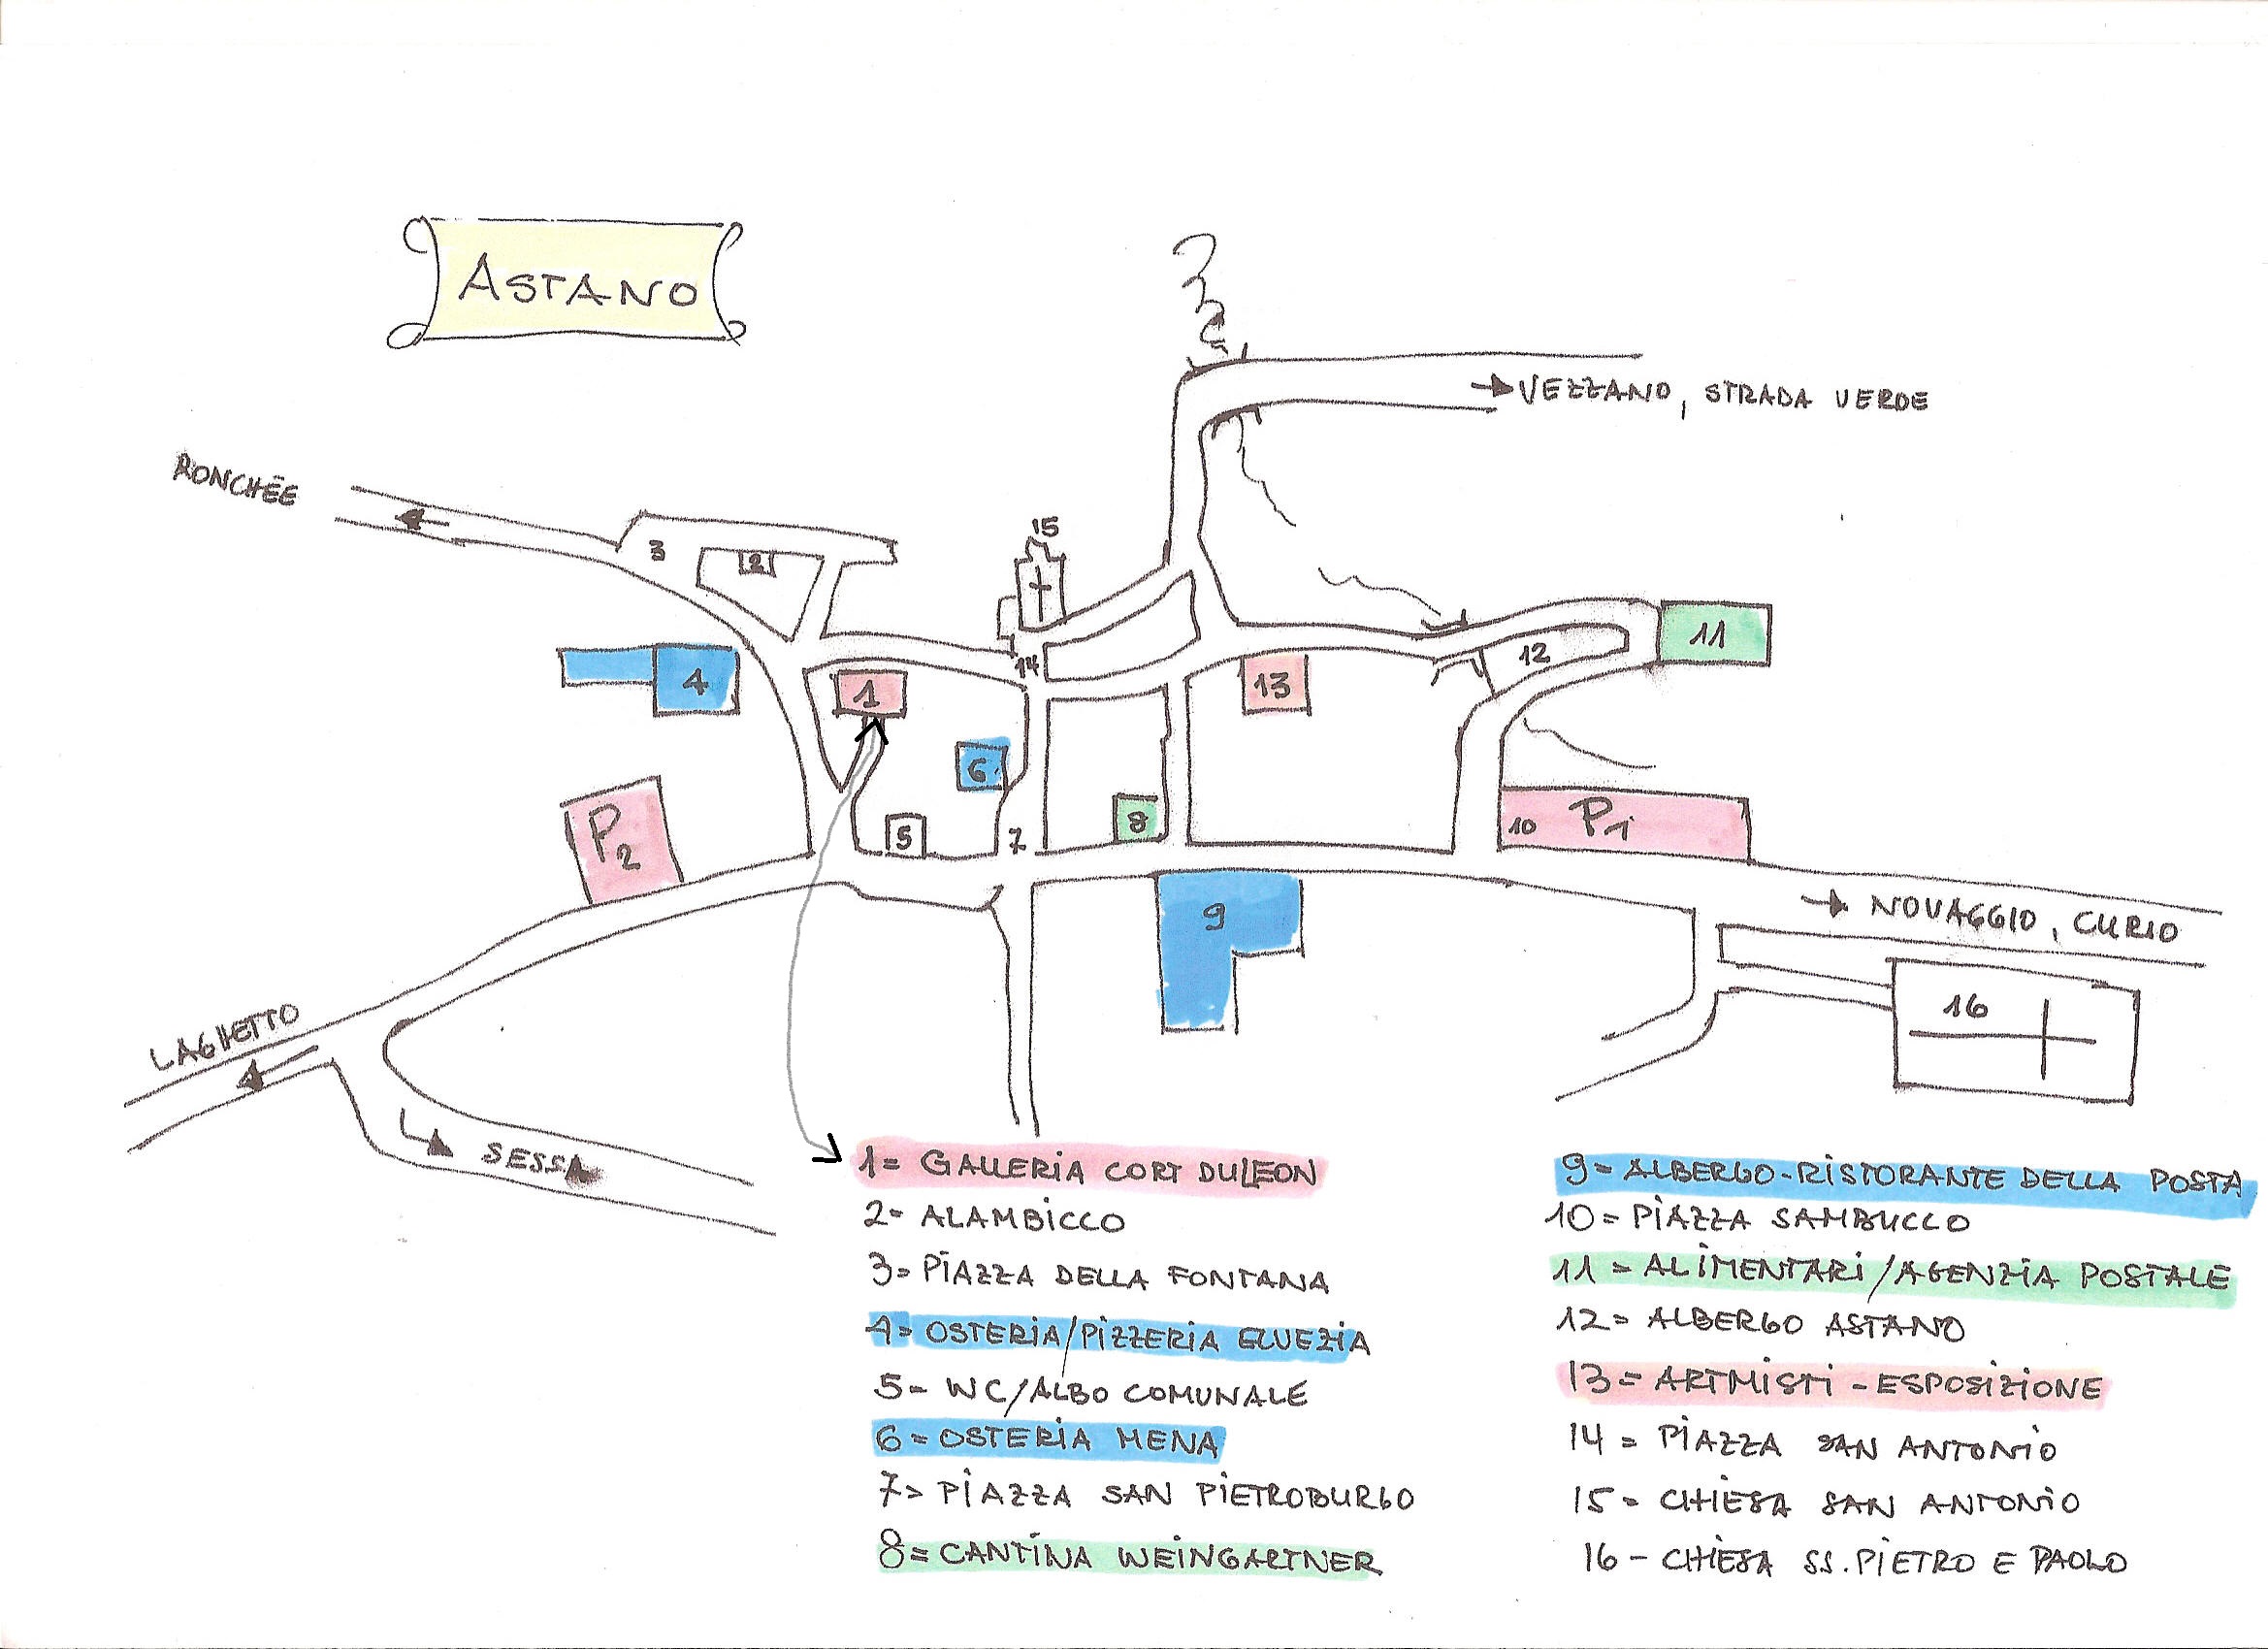 ASTANO
→ VEZZANO, STRADA VERDE
RONCHËE
15
3
2
14
12
11
4
1
13
6
P2
5
7
8
10 P1
9
→ NOVAGGIO, CURIO
16
LAGHETTO
SESSA
1= GALLERIA CORT DULEON
2= ALAMBICCO
3= PIAZZA DELLA FONTANA
4= OSTERIA/PIZZERIA ELVEZIA
5- WC/ALBO COMUNALE
6= OSTERIA MENA
7= PIAZZA SAN PIETROBURGO
8= CANTINA WEINGARTNER
9= ALBERGO-RISTORANTE DELLA POSTA
10= PIAZZA SAMBUCCO
11= ALIMENTARI/AGENZIA POSTALE
12= ALBERGO ASTANO
13= ARTMISTI - ESPOSIZIONE
14= PIAZZA SAN ANTONIO
15= CHIESA SAN ANTONIO
16- CHIESA SS. PIETRO E PAOLO